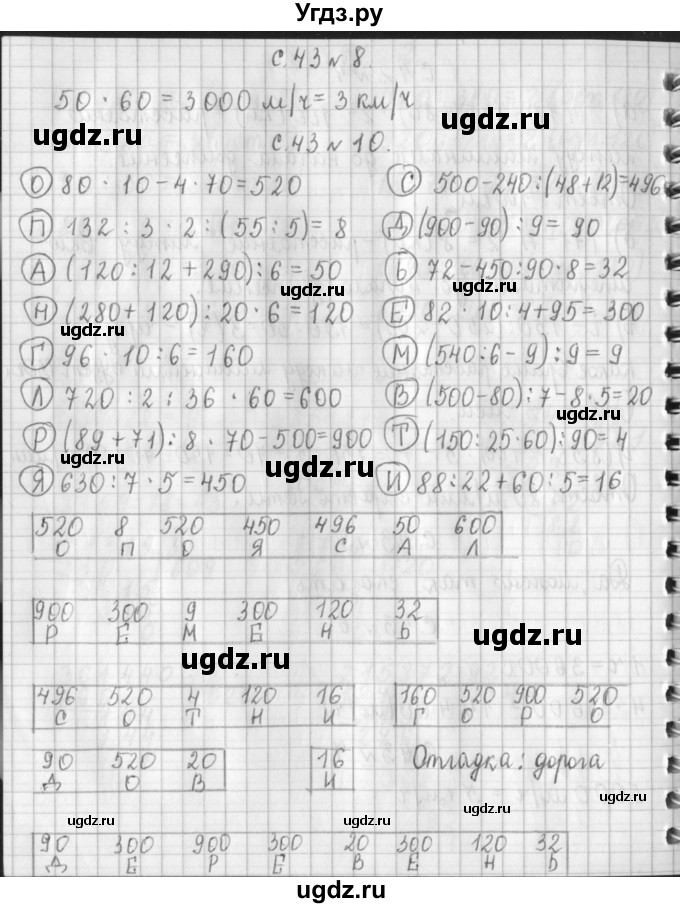 Угдз.ру
с.43 № 8.
50 · 60 = 3000 м/ч = 3 км/ч
ugdz.ru ugdz.ru
с.43 № 10.
О 80 · 10 - 4 · 70 = 520 С 500 - 240 : (48 + 12) = 496
П 132 : 3 · 2 : (55 : 5) = 8 Д (900 - 90) : 9 = 90
А (120 : 12 + 290) : 6 = 50 Б 72 - 450 : 90 · 8 = 32
ugdz.ru ugdz.ru
Н (280 + 120) : 20 · 6 = 120 Е 82 · 10 : 4 + 95 = 300
ugdz.ru
Г 96 · 10 : 6 = 160 М (540 : 6 - 9) : 9 = 9
Л 720 : 2 : 36 · 60 = 600 В (500 - 80) : 7 - 8 · 5 = 20
ugdz.ru
Р (89 + 71) : 8 · 70 - 500 = 900 Т (150 : 25 · 60) : 90 = 4
ugdz.ru ugdz.ru ugdz.ru
Я 630 : 7 · 5 = 450 И 88 : 22 + 60 : 5 = 16
520 8 520 450 496 50 600
О П О Я С А Л
900 300 9 300 120 32
Р Е М Е Н Ь
ugdz.ru ugdz.ru
496 520 4 120 16 160 520 900 520
С О Т Н И Г О Р О
90 520 20 16 Отгадка: дорога
Д О В И
ugdz.ru ugdz.ru ugdz.ru
90 300 900 300 20 300 120 32
Д Е Р Е В Е Н Ь
ugdz.ru